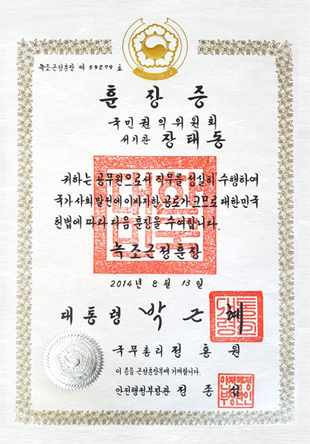 녹조근정훈장 제 59879 호
훈장증
국민권익위원회
서기관 장태동
귀하는 공무원으로서 직무를 성실히 수행하여
국가사회발전에 이바지한 공로가 크므로 대한민국
헌법에 따라 다음 훈장을 수여합니다.
녹조근정훈장
2014년 8월 13일
대통령 박근혜
국무총리 정홍원
이 증을 근정훈장부에 기재합니다.
안전행정부장관 정종섭